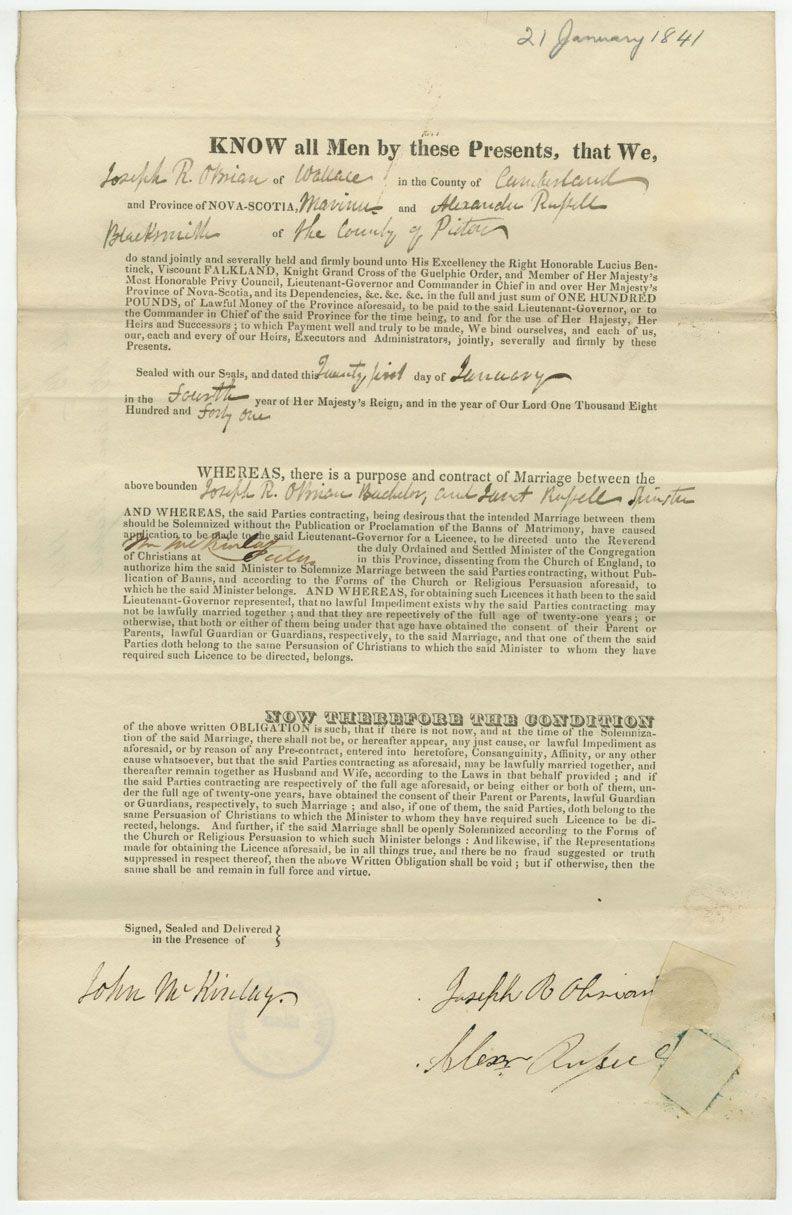 21 January 1841
KNOW all Men by these Presents, that We,
Joseph R. OBrian of Wallace in the County of Cumberland
and Province of NOVA-SCOTIA, Marinor and Alexander Russell
Blacksmith of the County of Pictou
do stand jointly and severally held and firmly bound unto His Excellency the Right Honorable Lucius Ben-
tinck, Viscount FALKLAND, Knight Grand Cross of the Guelphic Order, and Member of Her Majesty's
Most Honorable Privy Council, Lieutenant-Governor and Commander in Chief in and over Her Majesty's
Province of Nova-Scotia, and its Dependencies, &c. &c. &c. in the full and just sum of ONE HUNDRED
POUNDS, of Lawful Money of the Province aforesaid, to be paid to the said Lieutenant-Governor, or to
the Commander in Chief of the said Province for the time being, to and for the use of Her Hajesty, Her
Heirs and Successors ; to which Payment well and truly to be made, We bind ourselves, and each of us,
our, each and every of our Heirs, Executors and Administrators, jointly, severally and firmly by these
Presents.
Sealed with our Seals, and dated this Twenty first day of January
in the Fourth year of Her Majesty's Reign, and in the year of Our Lord One Thousand Eight
Hundred and Forty one
WHEREAS, there is a purpose and contract of Marriage between the
above bounden Joseph R. OBrian Bachelor, and Janet Russell Spinster
AND WHEREAS, the said Parties contracting, being desirous that the intended Marriage between them
should be Solemnized without the Publication or Proclamation of the Banns of Matrimony, have caused
application to be made to the said Lieutenant-Governor for a Licence, to be directed unto the Reverend
Wm McKinlay the duly Ordained and Settled Minister of the Congregation
of Christians at Pictou in this Province, dissenting from the Church of England, to
authorize him the said Minister to Solemnize Marriage between the said Parties contracting, without Pub-
lication of Banns, and according to the Forms of the Church or Religious Persuasion aforesaid, to
which he the said Minister belongs. AND WHEREAS, for obtaining such Licences it hath been to the said
Lieutenant-Governor represented, that no lawful Impediment exists why the said Parties contracting may
not be lawfully married together ; and that they are repectively of the full age of twenty-one years ; or
otherwise, that both or either of them being under that age have obtained the consent of their Parent or
Parents, lawful Guardian or Guardians, respectively, to the said Marriage, and that one of them the said
Parties doth belong to the same Persuasion of Christians to which the said Minister to whom they have
required such Licence to be directed, belongs.
NOW THEREFORE THE CONDITION
of the above written OBLIGATION is such, that if there is not now, and at the time of the Solemniza-
tion of the said Marriage, there shall not be, or hereafter appear, any just cause, or lawful Impediment as
aforesaid, or by reason of any Pre-contract, entered into heretofore, Consanguinity, Affinity, or any other
cause whatsoever, but that the said Parties contracting as aforesaid, may be lawfully married together, and
thereafter remain together as Husband and Wife, according to the Laws in that behalf provided ; and if
the said Parties contracting are respectively of the full age aforesaid, or being either or both of them, un-
der the full age of twenty-one years, have obtained the consent of their Parent or Parents, lawful Guardian
or Guardians, respectively, to such Marriage ; and also, if one of them, the said Parties, doth belong to the
same Persuasion of Christians to which the Minister to whom they have required such Licence to be di-
rected, belongs. And further, if the said Marriage shall be openly Solemnized according to the Forms of
the Church or Religious Persuasion to which such Minister belongs : And likewise, if the Representations
made for obtaining the Licence aforesaid, be in all things true, and there be no fraud suggested or truth
suppressed in respect thereof, then the above Written Obligation shall be void ; but if otherwise, then the
same shall be and remain in full force and virtue.
Signed, Sealed and Delivered
in the Presence of
John McKinlay
Joseph R Obrian
Alexr Russell